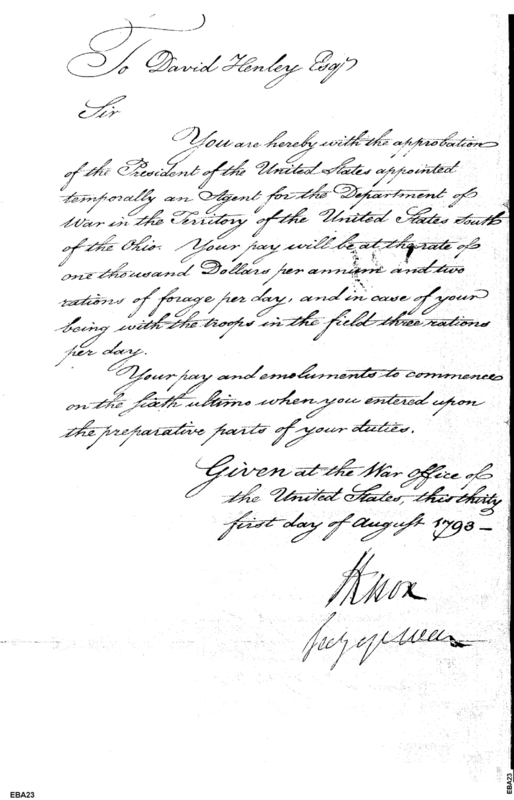 To David Henley Esqr
Sir
You are hereby with the approbation
of the President of the United States appointed
temporally an Agent for the Department of
War in the Territory of the United States South
of the Ohio. Your pay will be at the rate of
one thousand Dollars per annum and two
rations of forage per day, and in case of your
being with the troops in the field three rations
per day.
Your pay and emoluments to commence
on the sixth ultimo when you entered upon
the preparative parts of your duties.
Given at the War office of
the United States, this thirty
first day of August 1793-
HKnox
Secy of War
EBA23
EBA23